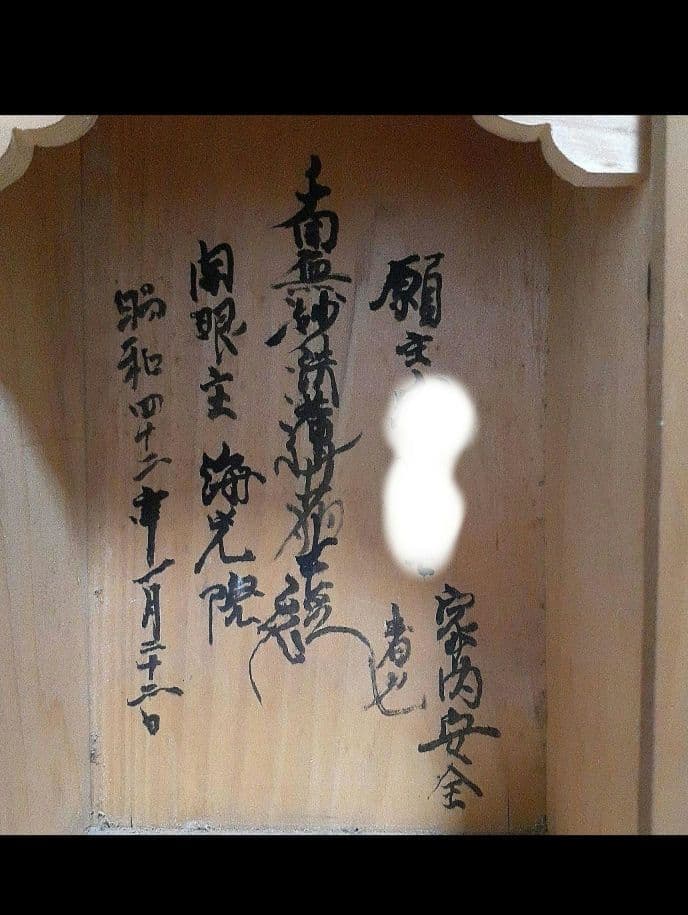 家内安全
願主
者也
南無妙法蓮華経
開眼主 海光院
昭和四十二年一月二十二日